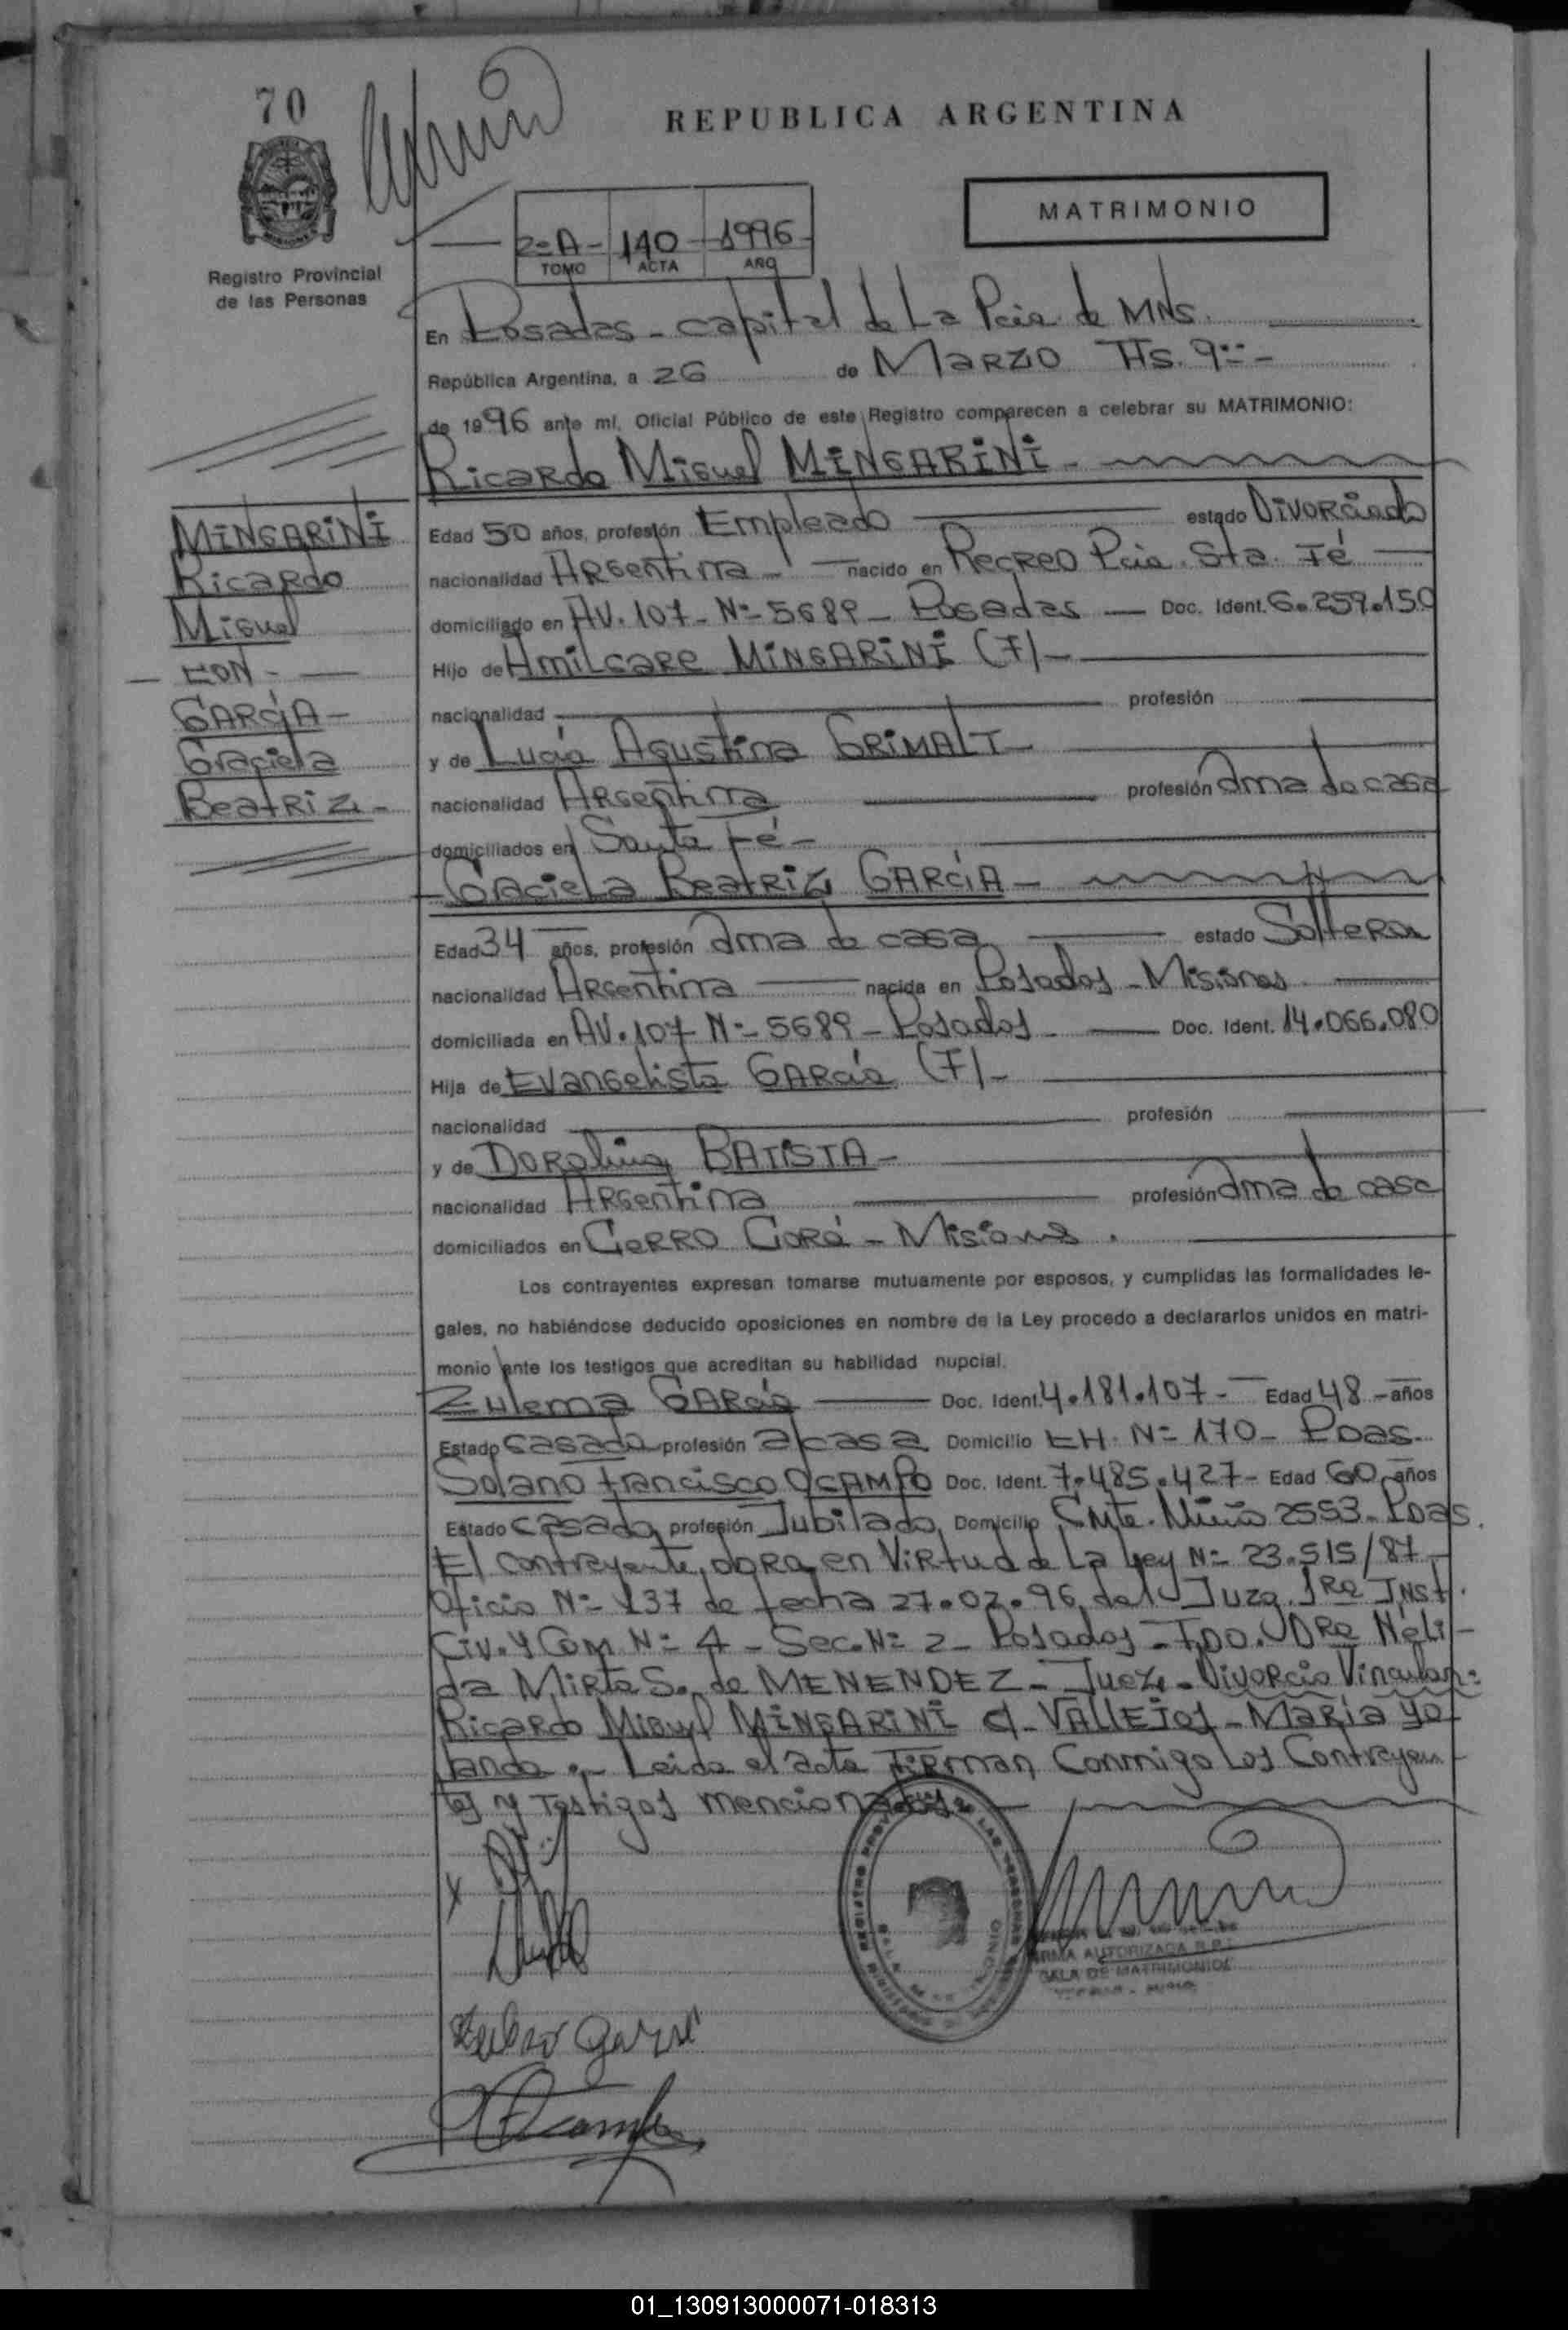 70
REPUBLICA ARGENTINA
MATRIMONIO
2=A- 140 1996
TOMO ACTA AÑO
Registro Provincial
de las Personas
En Posadas - capital de La Pcia. de MNS.
República Argentina, a 26 de MARZO Hs. 9
de 1996 ante mí, Oficial Público de este Registro comparecen a celebrar su MATRIMONIO:
Ricardo Miguel MINGARINI -
MINGARINI
Ricardo
Miguel
- CON -
GARCIA -
Graciela
Beatriz -
Edad 50 años, profesión Empleado estado Divorciado
nacionalidad Argentina - nacido en Recreo Pcia. Sta. Fé
domiciliado en AV. 107 - Nº 5689 - Posadas - Doc. Ident. 6.259.150
Hijo de Amilcare MINGARINI (F) -
nacionalidad profesión
y de Lucía Agustina GRIMALT -
nacionalidad Argentina profesión ama de casa
domiciliados en Santa Fé -
Graciela Beatriz GARCÍA -
Edad 34 años, profesión ama de casa estado Soltera
nacionalidad Argentina nacida en Posadas - Misiones
domiciliada en AV. 107 Nº 5689 - Posadas Doc. Ident. 14.066.080
Hija de Evangelista GARCía (F) -
nacionalidad profesión
y de Doralina BATISTA -
nacionalidad Argentina profesión ama de casa
domiciliados en Cerro Corá - Misiones .
Los contrayentes expresan tomarse mutuamente por esposos, y cumplidas las formalidades le-
gales, no habiéndose deducido oposiciones en nombre de la Ley procedo a declararlos unidos en matri-
monio ante los testigos que acreditan su habilidad nupcial.
Zulema García Doc. Ident. 4.181.107 - Edad 48 - años
Estado casada profesión a/casa Domicilio CH. Nº 170 - Pdas.
Solano Francisco OCAMPO Doc. Ident. 7.485.427 - Edad 60 años
Estado casado profesión Jubilado Domicilio Cnte. Miño 2553 - Pdas.
El contrayente, obra en Virtud de La Ley Nº 23.515/87 -
Oficio Nº 137 de fecha 27.02.96 del Juzg. 1Ra Inst.
Civ. y Com Nº 4 - Sec. Nº 2 - Posadas - FDO. DRa Néli-
da Mirta S. de MENENDEZ - Juez - Divorcio Vincular:
Ricardo Miguel MINGARINI c/ VALLEJOS - María Yo-
landa - Leída el acta Firman Conmigo Los Contrayen-
tes y Testigos mencionados
REGISTRO PROVINCIAL DE LAS PERSONAS
FIRMA AUTORIZADA R.P.
SALA DE MATRIMONIOS
Zulema García
01_130913000071-018313